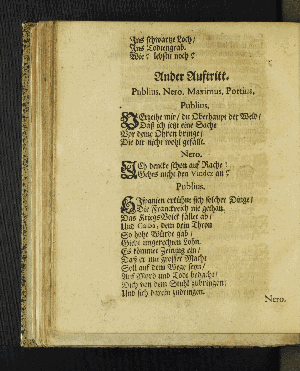 Ins schwartze Loch/
Ins Todtengrab.
Wie? lebstu noch?
Ander Aufftritt.
Publius, Nero, Maximus, Portius,
Publius.
VErzeihe mir/ du Oberhaupt der Welt/
Daß ich jetzt eine Sache
Vor deine Ohren bringe/
Die dir nicht wohl gefällt.
Nero.
ICh dencke schon auf Rache!
Gehts nicht den Vindex an?
Publius.
HIspanien erkühnt sich solcher Dinge/
Die Franckreich nie gethan.
Das KriegsVolck fället ab/
Und Galba, dem dein Thron
So hohe Würde gab/
Giebt ungerochnen Lohn.
Es kömmet Zeitung ein/
Daß er mit grosser Macht
Soll auf dem Wege seyn/
Auf Mord und Tod bedacht/
Dich von dem Stuhl zubringen/
Und sich darein zudringen.
Nero.